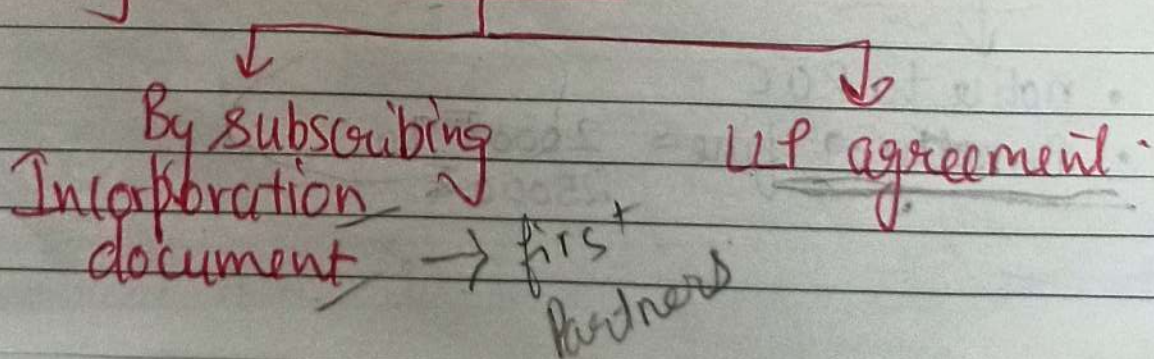 By subscribing
Incorporation
document → first
Partners
LLP agreement.